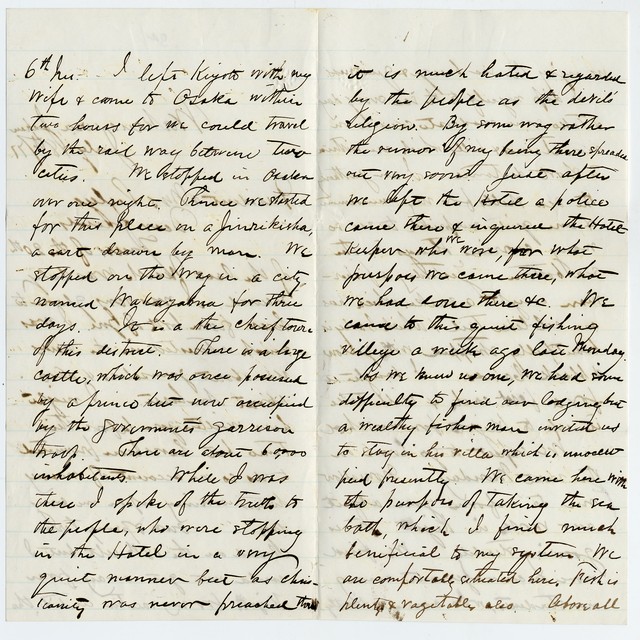 6th Inu. I left Kiyoto with my
wife & came to Osaka within
two hours for we could travel
by the rail way between two
cities. We stopped in Osaka
over one night. Thence we started
for this place on a Jinrikisha,
a cart drawn by man. We
stopped on the way in a city
named Wakayama for three
days. It is a the chief town
of this district. There is a large
castle, which was once possessed
by a prince but now occupied
by the governments garrison
troop. There are about 60000
inhabitents While I was
there I spoke of the truth to
the people, who were stopping
in the Hotel in a very
quiet manner but as chris-
tianity was never preached there
it is much hated & regarded
by the people as the devils
religion. By some way rather
the rumor of my being there spreaded
out very soon. Just after
we left the Hotel a police
came there & inquired the Hotel
keeper who we were, for what
purpose we came there, what
we had done there &c. We
came to this quiet fishing
village a week ago last Monday.
As we knew no one, we had some
difficulty to find our lodging but
a wealthy fisher man invited us
to stay in his villa which is unoccu
pied presently. We came here with
the purpose of taking the sea
bath, which I find much
beneficial to my system. We
are comfortably situated here. Fish is
plenty & vagetable also. Above all